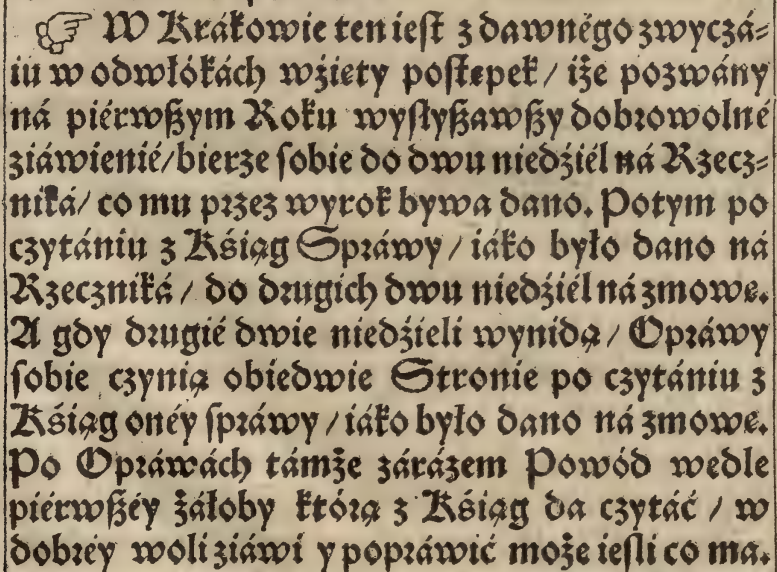 ☞ W Krákowie ten iest z dawnégo zwyczá⸗
iu w odwłókách wźięty postępek / iże pozwány
ná piérwszym Roku wysłyszawszy dobrowolné
ziáwienié / bierze sobie do dwu niedźiél ná Rzecz⸗
niká / co mu przez wyrok bywa dano. Potym po
czytániu z Kśiąg Spráwy / iáko było dano ná
Rzeczniká / do drugich dwu niedźiél ná zmowę.
A gdy drugié dwie niedźieli wynidą / Opráwy
sobie czynią obiedwie Stronie po czytániu z
Kśiąg onéy spráwy / iáko było dano ná zmowę.
Po Opráwách támże zárázem Powód wedle
piérwszéy żáłoby którą z Kśiąg da czytáć / w
dobréy woli ziáwi y popráwić może iesli co ma.